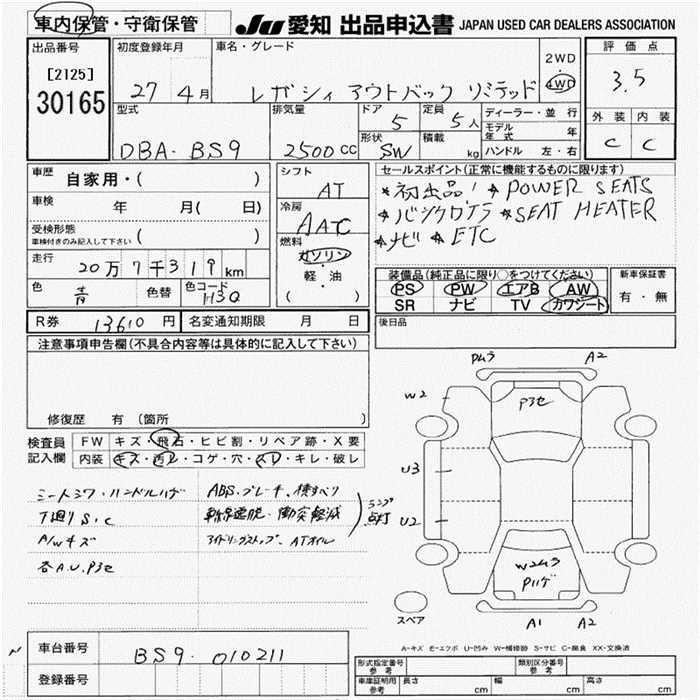 車内保管・守衛保管
JU 愛知 出品申込書 JAPAN USED CAR DEALERS ASSOCIATION
出品番号 初度登録年月 車名・グレード 2WD 評価点
[2125]
30165 27 4月 レガシィ アウトバック リミテッド 4WD 3.5
型式 排気量 ドア 定員 ディーラー・並行 外装 内装
5 5人 モデル年式 年
DBA-BS9 2500CC 形状 SW 積載 kg ハンドル 左・右 C C
車歴 自家用・( ) シフト AT セールスポイント(正常に機能するものに限ります)
車検 年 月( 日) 冷房 AAC *初出品! *POWER SEATS
受検形態 車検付きのみ記入して下さい ( ) 燃料 ガソリン *SEAT HEATER
走行 20万7千319km 軽・油 *ナビ *ETC
( )
色 青 色替 色コード H3Q
装備品(純正品に限り○をつけてください) 新車保証書
PS PW エアB AW 有・無
SR ナビ TV カワシート
R券 13610円 名変通知期限 月 日 後日品
注意事項申告欄(不具合内容等は具体的に記入して下さい)
修復歴 有 (箇所 )
検査員記入欄 FW キズ・飛石・ヒビ割・リペア跡・X要
内装 キズ・汚レ・コゲ・穴・スレ・キレ・破レ
シートシワ・ハンドルハゲ ABS・ブレーキ、横すべり
下廻りS.C 車線逸脱・衝突軽減 ランプ点灯
A/Wキズ アイドリングストップ・ATオイル
各A.U.P3セ
ムラ A2
W2 P3セ
U3
U2
W2ムラ
Pハゲ
スペア A1 A2
A-キズ E-エクボ U-凹み W-補修跡 S-サビ C-腐食 XX-交換済
車台番号 BS9-010211
登録番号
形式指定番号 参考 類別区分番号 参考
車庫証明用 参考 長さ cm 幅 cm 高さ cm